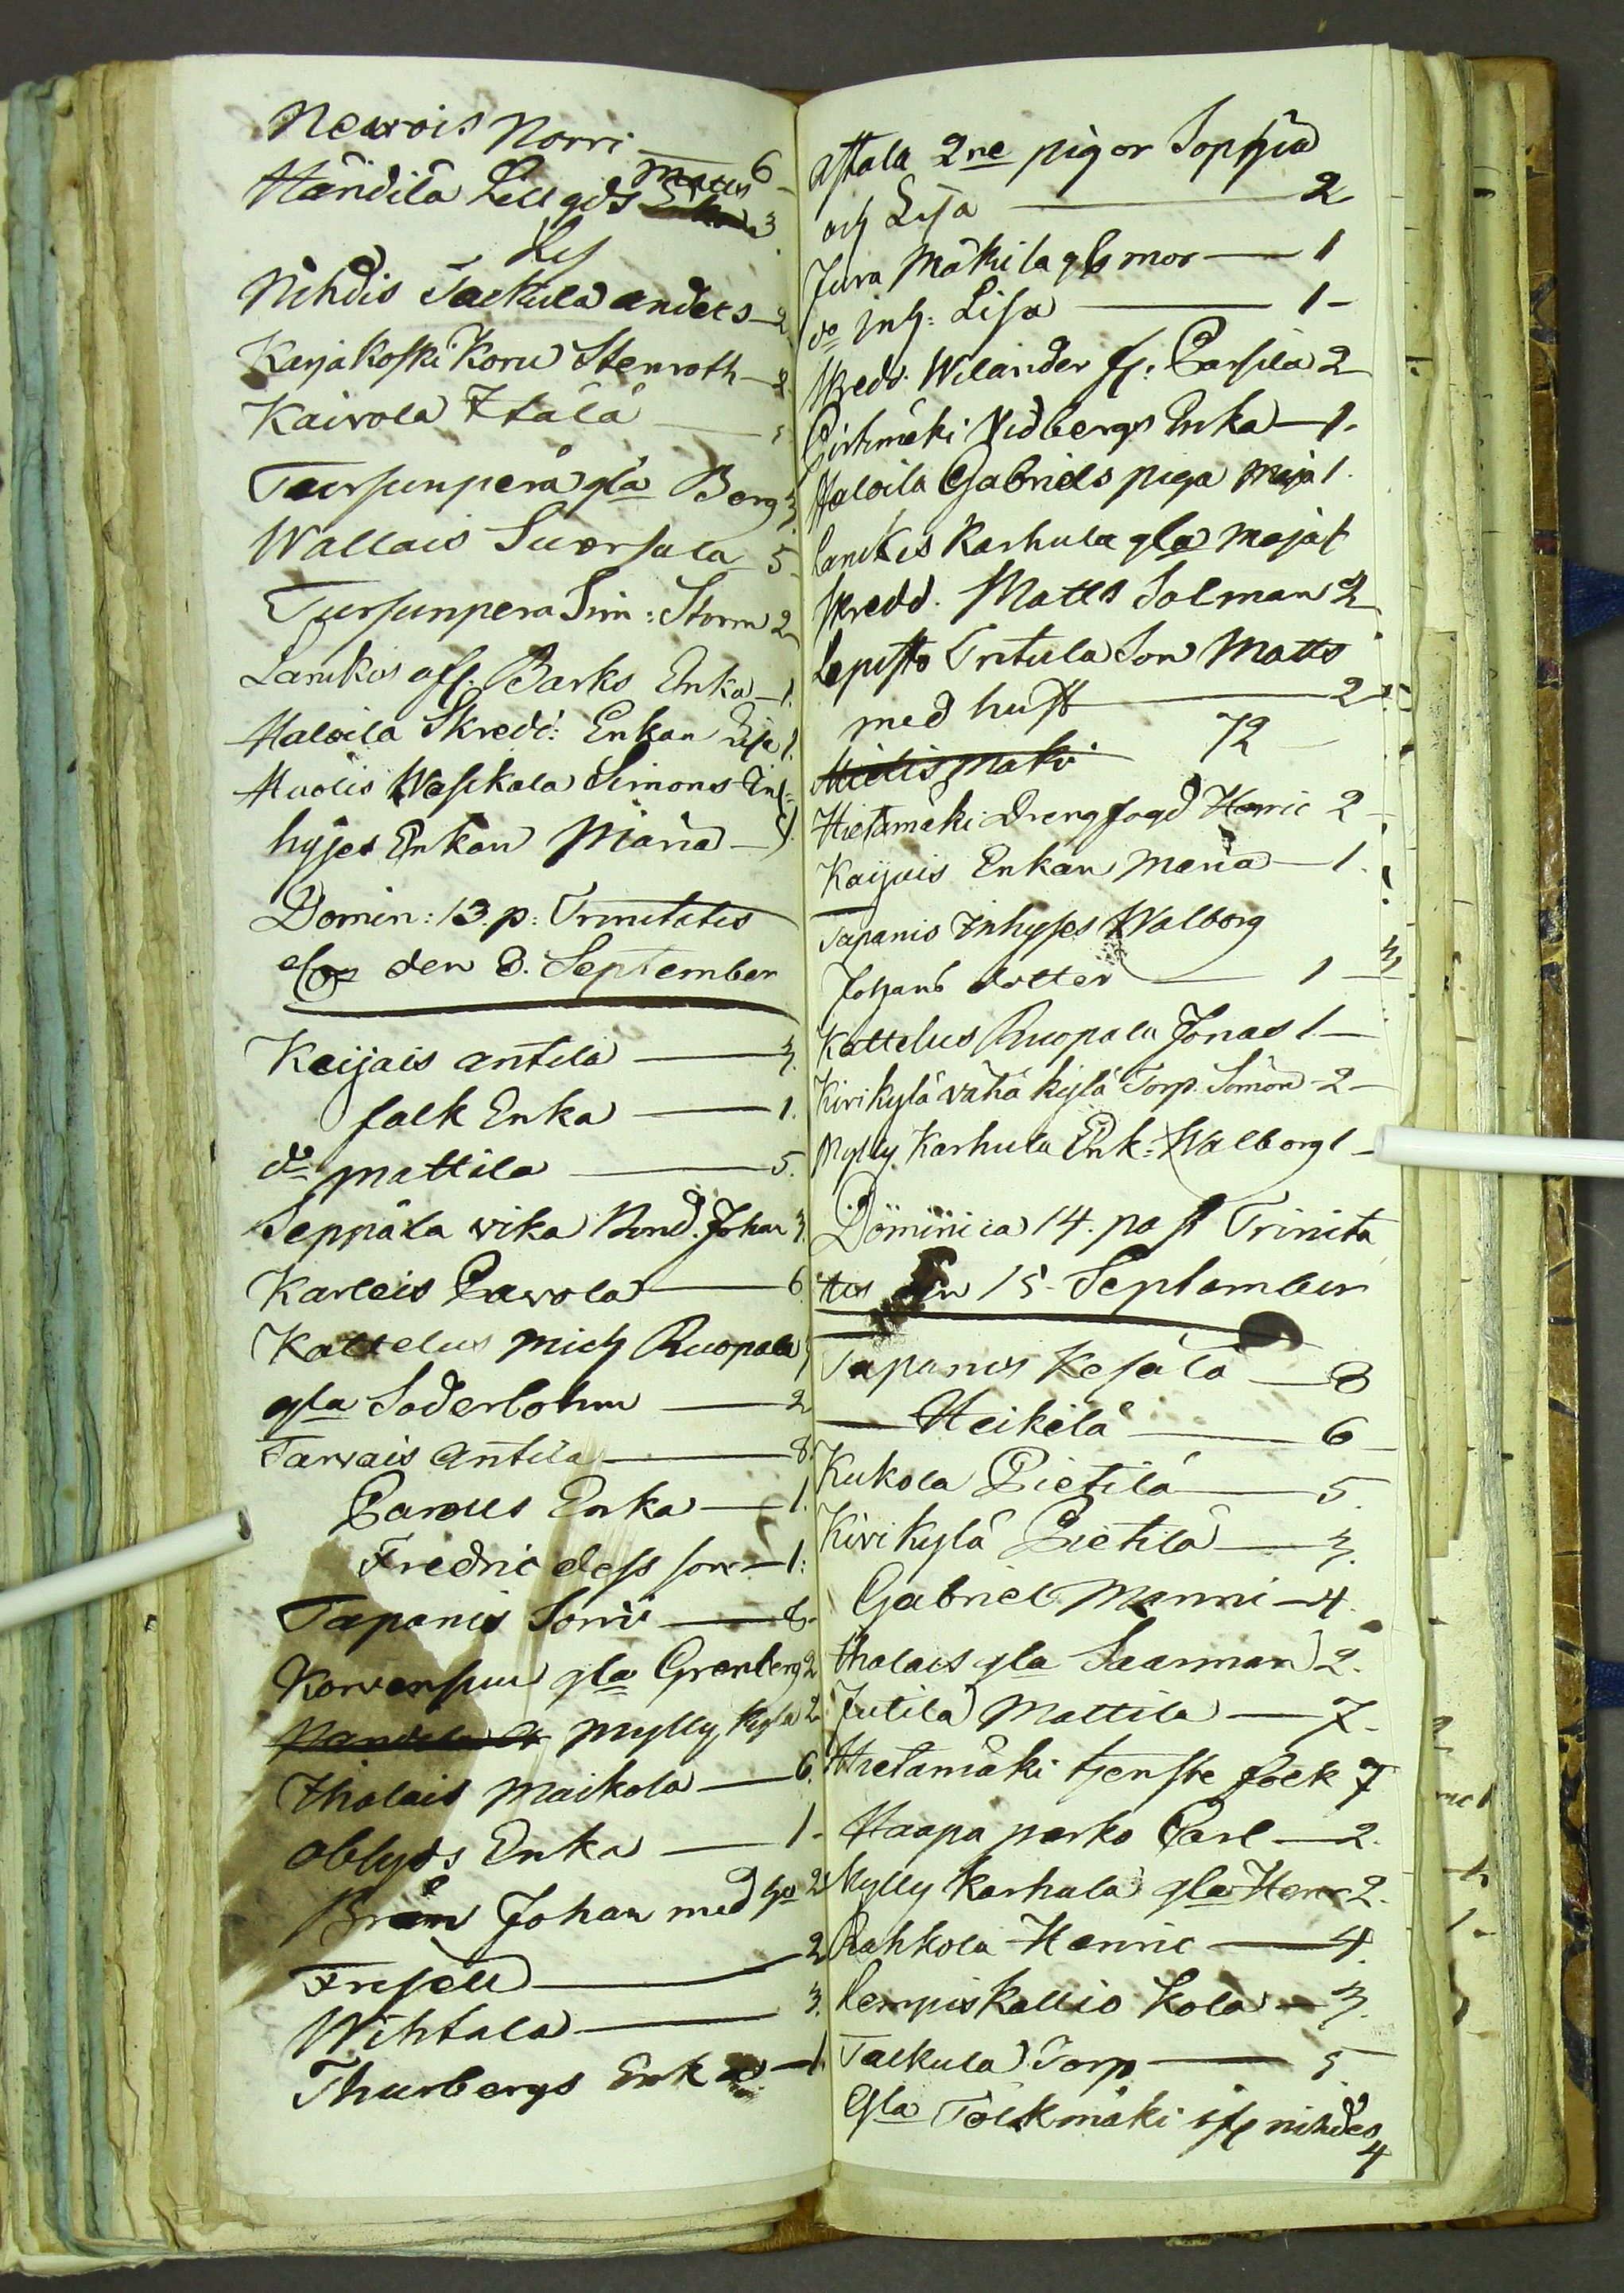 Newois Norri — 6
Händilä Lillgds Matts 3
Nihdis Talkula Anders — 2
Karjakoski Koru Stenroth — 2
Kaivola Ylälä —
Tursunperä gla Berg 3
Wallais Suorsala 5
Tursunpera Sim: Storm 2
Lamkos afs. Barks Enka — 1.
Haloila Skredd: Enkan Lisa 1.
Huolis Wasikala Simons Inh=
hyses Enkan Maria — 1.
Domin: 13. p: Trinitatis
den 8. September
Keijais Antila — 3.
falk Enka — 1.
do Mattila — 5.
Seppäla wika Bond. Johan 3.
Karlois Pavola — 6
Kattelus Mich Ruopala
gla Söderbohm — 2
Tarvais Antila — 8.
Parous Enka — 1.
Fredric dess son — 1.
Tapanis Sorri — 8.
Korvensuu gla Grenberg 2
Mylly Kylä 2
Ihalais Maikola — 6.
Oblyds Enka — 1 -
Johan med 2
Fresell — 2
Wihtala — 3.
Thurbergs Enka — 1.
Attala 2ne pigor Sophia
och Lisa — 2
Juva Mäkila gb mor — 1
do Inh: Lisa — 1 -
Skredd. Wilander fr. Parsila 2
Pirtimäki Widbergs Enka — 1.
Haloila Gabriels piga Maja 1.
Lamkis Karhula gla Maja 1
Skredd. Matts Salman 2
Lepistö Tritula Son Matts
med hust — 2
Mietis Mäki 72
Hietamäki Drengfogd Henric 2 -
Kaijais Enkan Maria — 1.
Tapanis Inhyses Walborg
Johans dotter — 1 —
Kattelus Ruopala Jonas 1 —
Kirikylä Vähä kylä Torp. Simon - 2 -
Mylly Karhula Enk: Walborg 1 -
Dominica 14. post Trinita
tis den 15. September
Tapanis Kesälä — 8
— Heikelä — 6
Kukola Pietilä — 5.
Kirikylä Pietilä — 3.
Gabriel Manni — 4.
Ihalais gla Saarman 2.
Jutila Mattila — 7.
Hietamäki tjenste folk 7
Haapa parko Carl — 2.
Mylly Karhula gla Henr 2.
Rahkola Henric — 4.
Lempis Kallio Kola — 3.
Talkula Torp — 5
Gla Tölkmäki ifr. nihdes
4